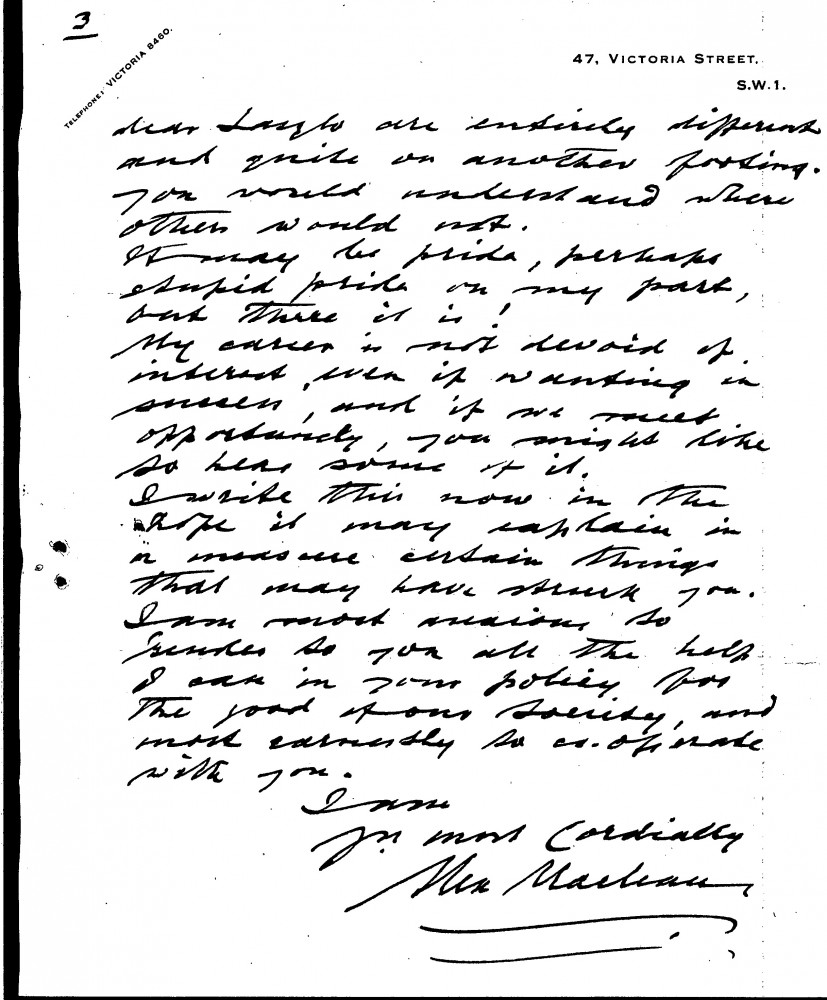 3
TELEPHONE: VICTORIA 8460.
47, VICTORIA STREET.
S.W.1.
dear Laszlo are entirely different
and quite on another footing.
you would understand where
others would not.
It may be pride, perhaps
stupid pride on my part,
but there it is!
My career is not devoid of
interest, even if wanting in
success, and if we meet
opportunely, you might like
to hear some of it.
I write this now in the
hope it may explain in
a measure certain things
that may have struck you.
I am most anxious to
render to you all the help
I can in your policy for
the good of our Society, and
most earnestly to co-operate
with you.
I am
Yrs most Cordially
Alex Maclean